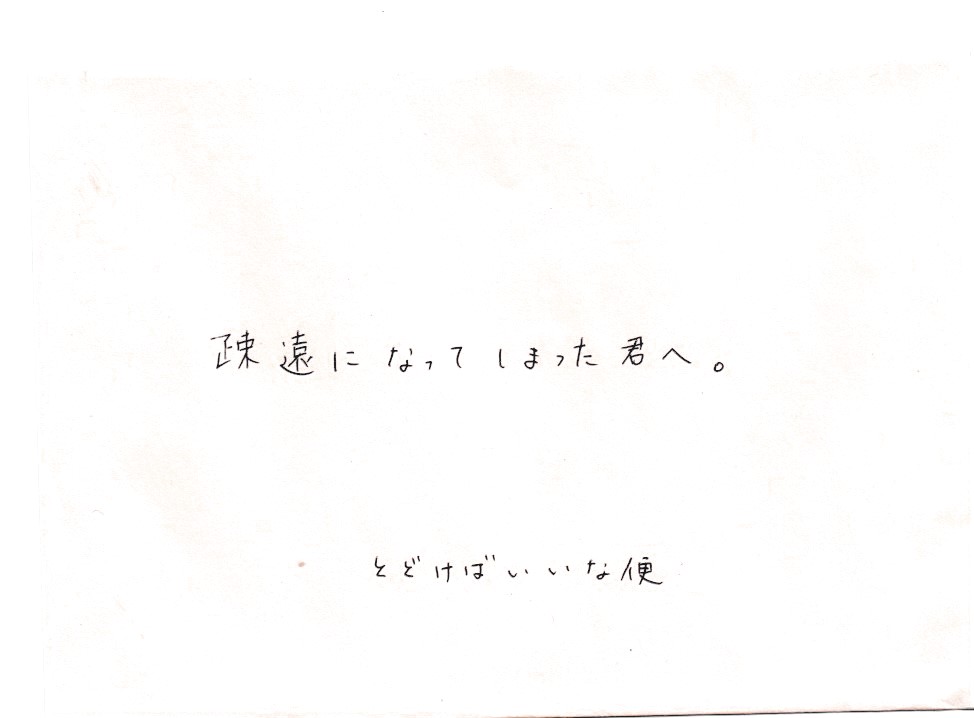 疎遠になってしまった君へ。
とどけばいいな便